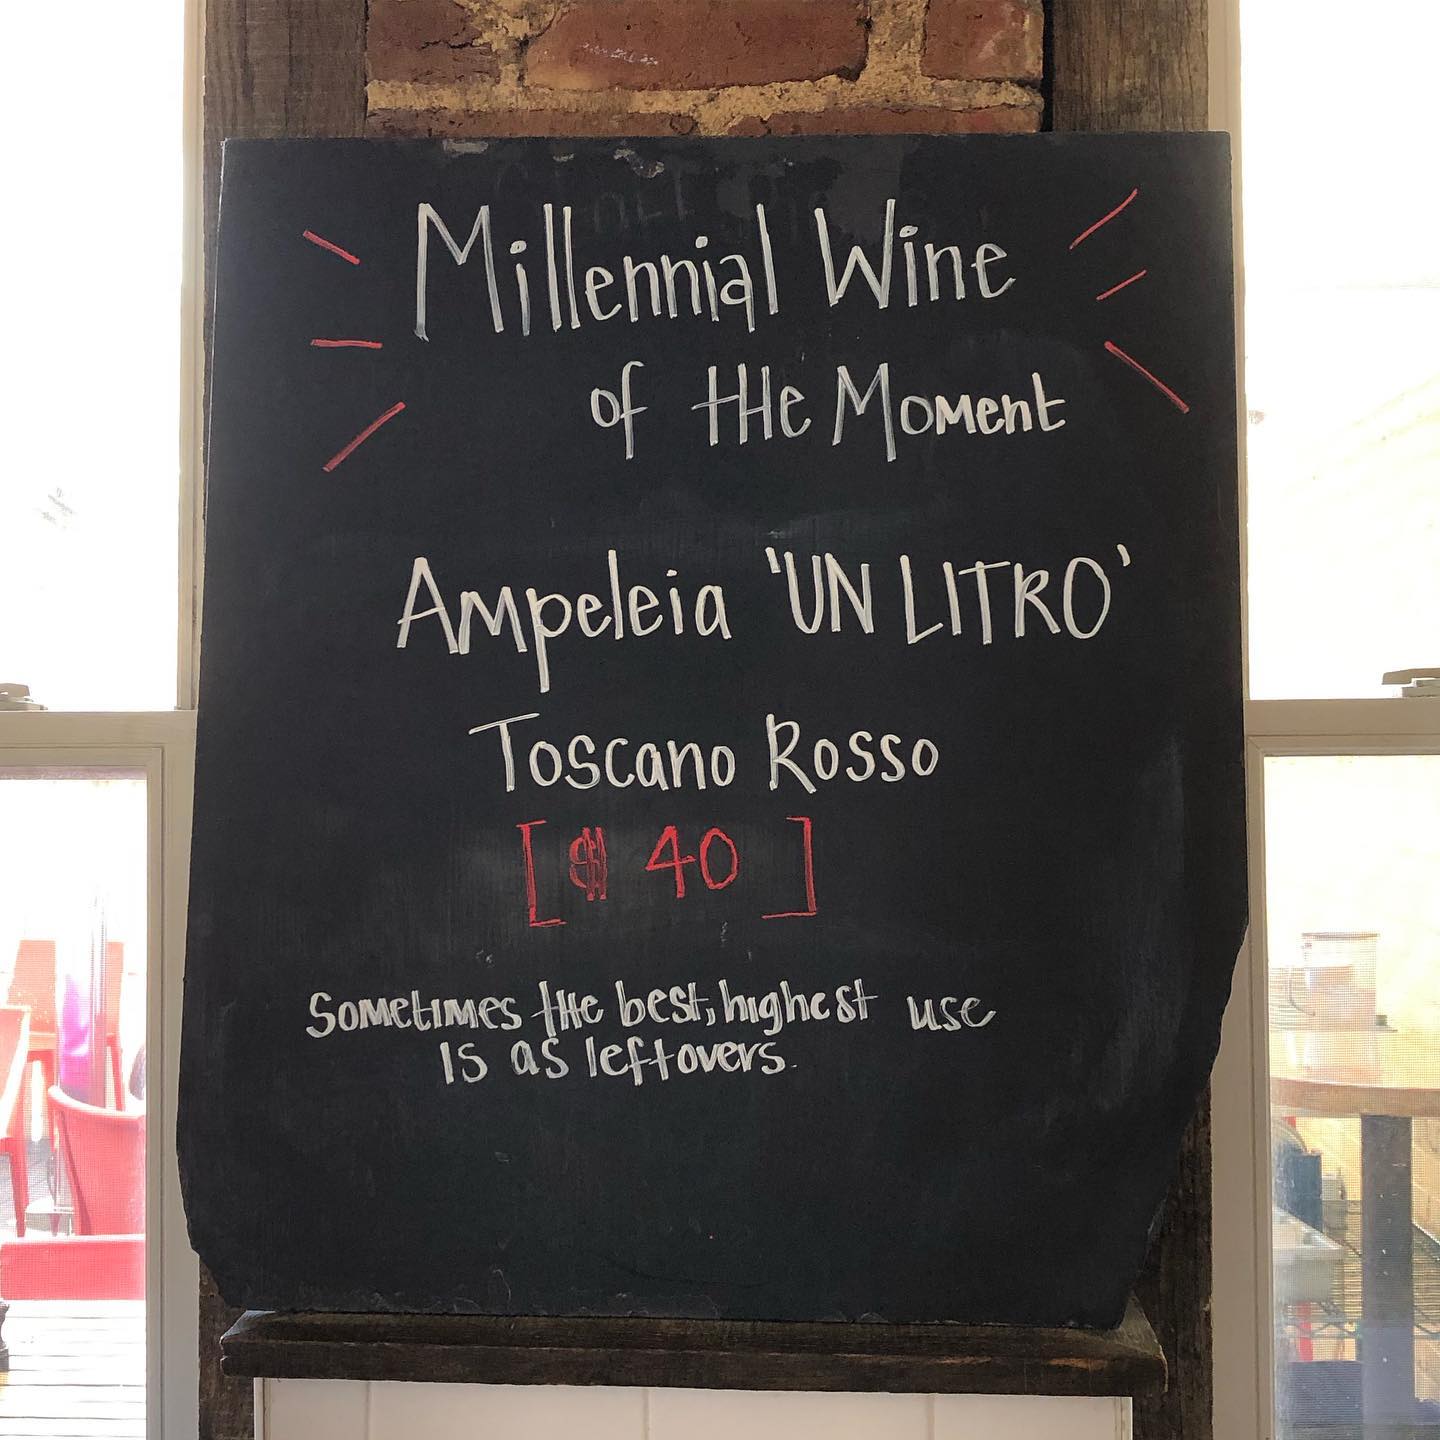 Millennial Wine
of tHe Moment
Ampeleia 'UN LITRO'
Toscano Rosso
[$ 40]
Sometimes the best, highest use
is as leftovers.